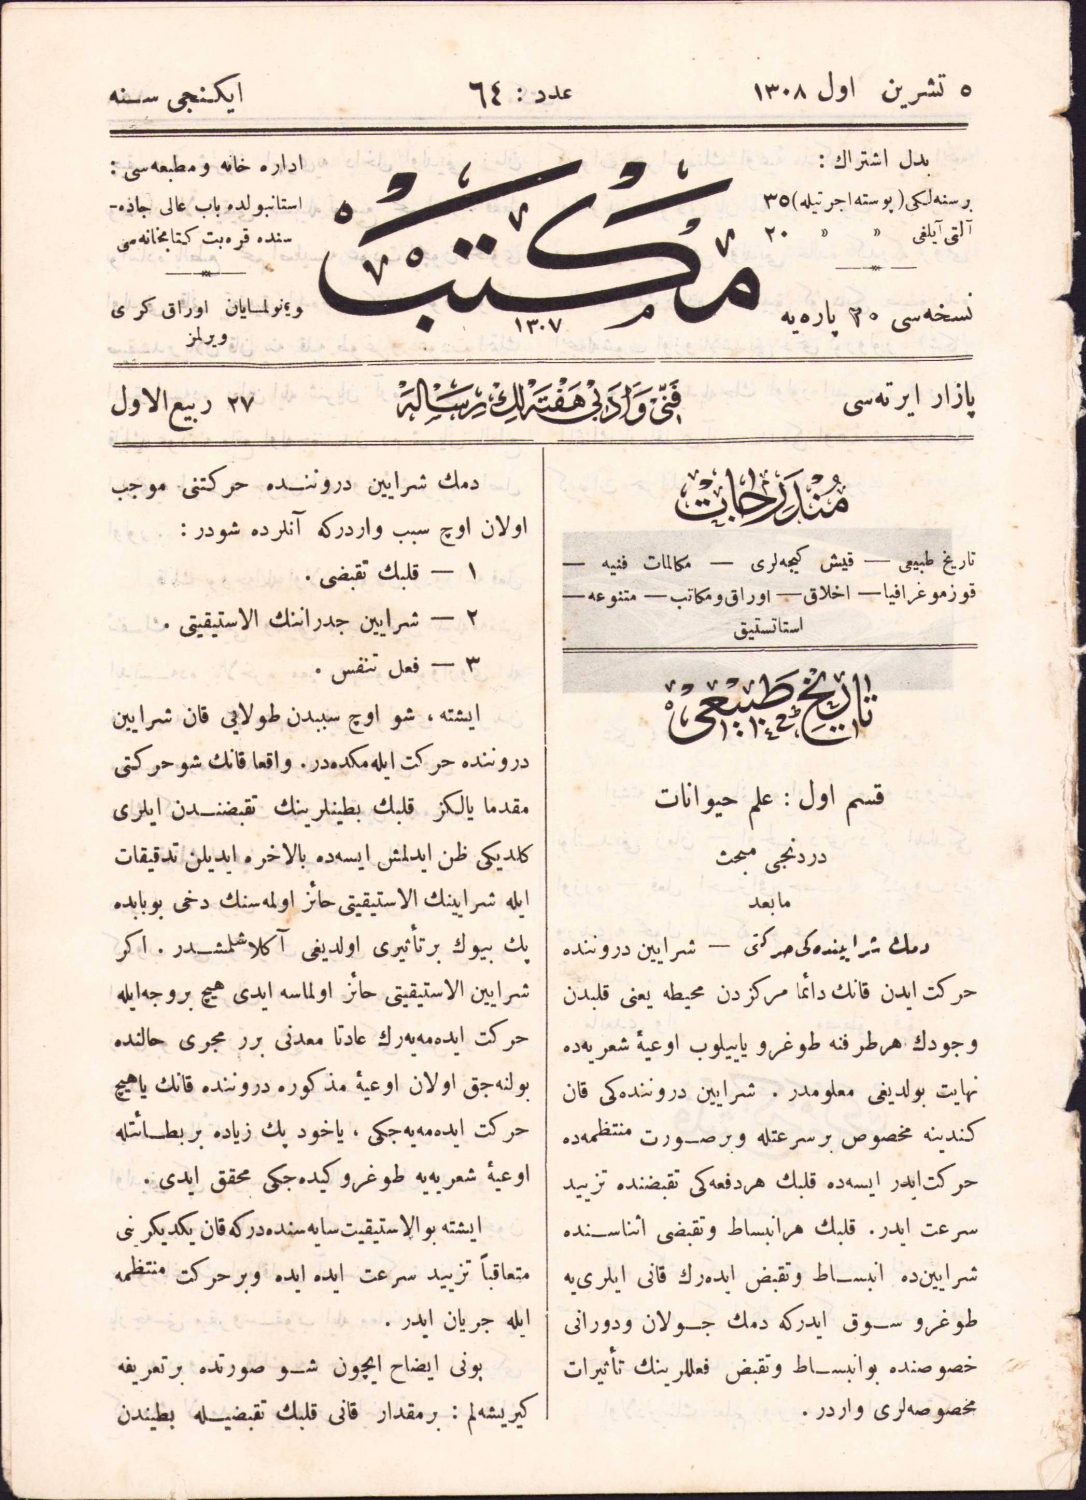 ٥ تشرین اول ١٣٠٨
عدد : ٦٤
ایکنجی سنه
بدل اشتراك :
برسنه‌لکی (پوسته اجرتیله) ٣٥
آلتی آیلغی » » ٢٠
نسخه‌سی ٢٠ پاره‌یه
مکتب
١٣٠٧
اداره خانه و مطبعه‌سی :
استانبولده باب عالی جاده-
سنده قره‌بت کتابخانه‌سی
اوراق کری
ویرلمز
پازار ایرته‌سی
فنی و ادبی هفته‌لك رساله
٢٧ ربیع الاول
مندرجات
تاریخ طبیعی — قیش کیجه‌لری — مکالمات فنیه —
قوزموغرافیا — اخلاق — اوراق ومکاتب — متنوعه —
استاتستیق
تاریخ طبیعی
قسم اول : علم حیوانات
دردنجی مبحث
مابعد
دمك شرایینده‌کی حرکتی — شرایین دروننده
حرکت ایدن قانك دائما مرکزدن محیطه یعنی قلبدن
وجودك هرطرفنه طوغرو یاییلوب اوعیهٔ شعریه‌ده
نهایت بولدیغی معلومدر . شرایین دروننده‌کی قان
کندینه مخصوص برسرعتله وبرصورت منتظمه‌ده
حرکت ایدر ایسه‌ده قلبك هردفعه‌کی تقبضنده تزیید
سرعت ایدر. قلبك هرانبساط وتقبضی اثناسنده
شرایین‌ده انبساط وتقبض ایده‌رك قانی ایلری‌یه
طوغرو سوق ایدرکه دمك جولان ودورانی
خصوصنده بوانبساط وتقبض فعللرینك تأثیرات
مخصوصه‌لری واردر .
دمك شرایین دروننده حرکتنی موجب
اولان اوچ سبب واردرکه آنلرده شودر :
١ — قلبك تقبضی .
٢ — شرایین جدراننك الاستیقیتی .
٣ — فعل تنفس .
ایشته ، شو اوچ سببدن طولایی قان شرایین
دروننده حرکت ایله‌مکده‌در. واقعا قانك شو حرکتی
مقدما یالکز قلبك بطینلرینك تقبضندن ایلری
کلدیکی ظن ایدلمش ایسه‌ده بالاخره ایدیلن تدقیقات
ایله شرایینك الاستیقیتی حائز اولمه‌سنك دخی بوبابده
پك بیوك برتأثیری اولدیغی آکلاشلمشدر . اکر
شرایین الاستیقیتی حائز اولماسه ایدی هیچ بروجه‌ایله
حرکت ایده‌مه‌یه‌رك عادتا معدنی برر مجری حالنده
بولنه‌جق اولان اوعیهٔ مذکوره دروننده قانك یاهیچ
حرکت ایده‌مه‌یه‌جکی ، یاخود پك زیاده بربطائتله
اوعیهٔ شعریه‌یه طوغرو کیده‌جکی محقق ایدی .
ایشته بوالاستیقیت سایه‌سنده‌درکه قان یکدیکرینی
متعاقباً تزیید سرعت ایده ایده وبرحرکت منتظمه
ایله جریان ایدر .
بونی ایضاح ایچون شو صورتده برتعریفه
کیریشه‌لم : برمقدار قانی قلبك تقبضیله بطیندن